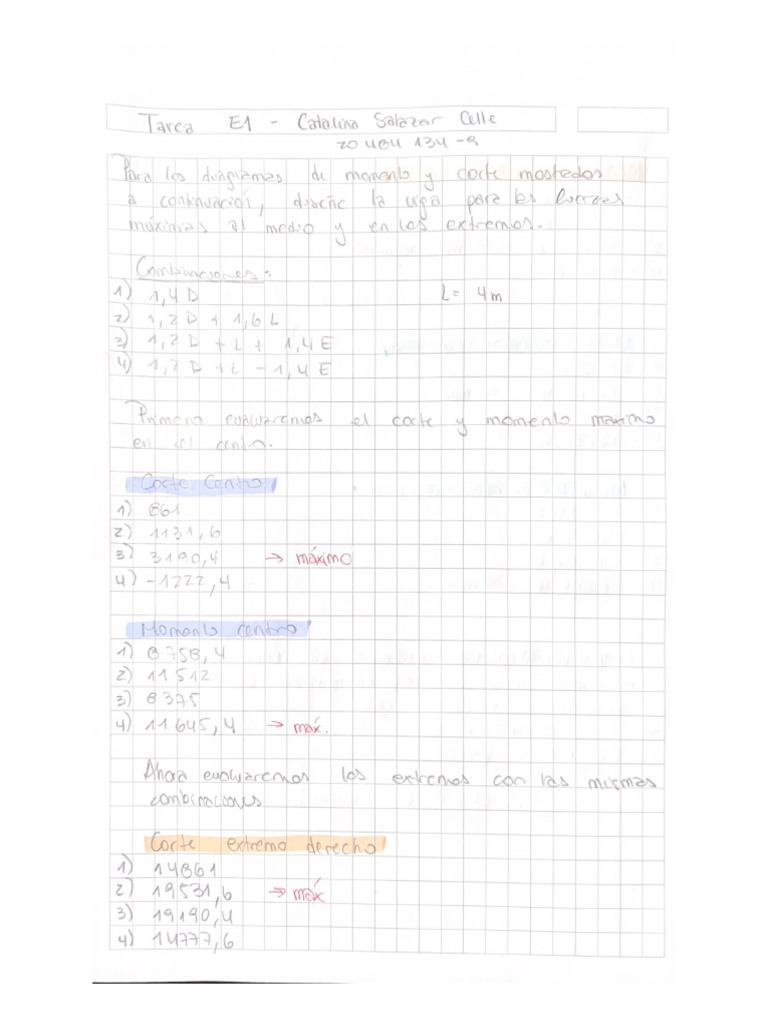 Tarea E1 - Catalina Salazar Celle
20 484 134 -9
Para los diagramas de momento y corte mostados
a continuación, diseñe la viga para las fuerzas
máximas al medio y en los extremos.
Combinaciones:
1) 1,4 D L= 4m
2) 1,2 D + 1,6 L
3) 1,2 D + L + 1,4 E
4) 1,2 D + L - 1,4 E
Primero evaluaremos el corte y momento maximo
en el centro.
Corte Centro
1) 861
2) 1131,6
3) 3190,4 → máximo
4) -1222,4
Momento centro
1) 8758,4
2) 11512
3) 8375
4) 11645,4 → máx.
Ahora evaluaremos los extremos con las mismas
combinaciones
Corte extremo derecho
1) 14861
2) 19531,6 → máx
3) 19190,4
4) 14777,6